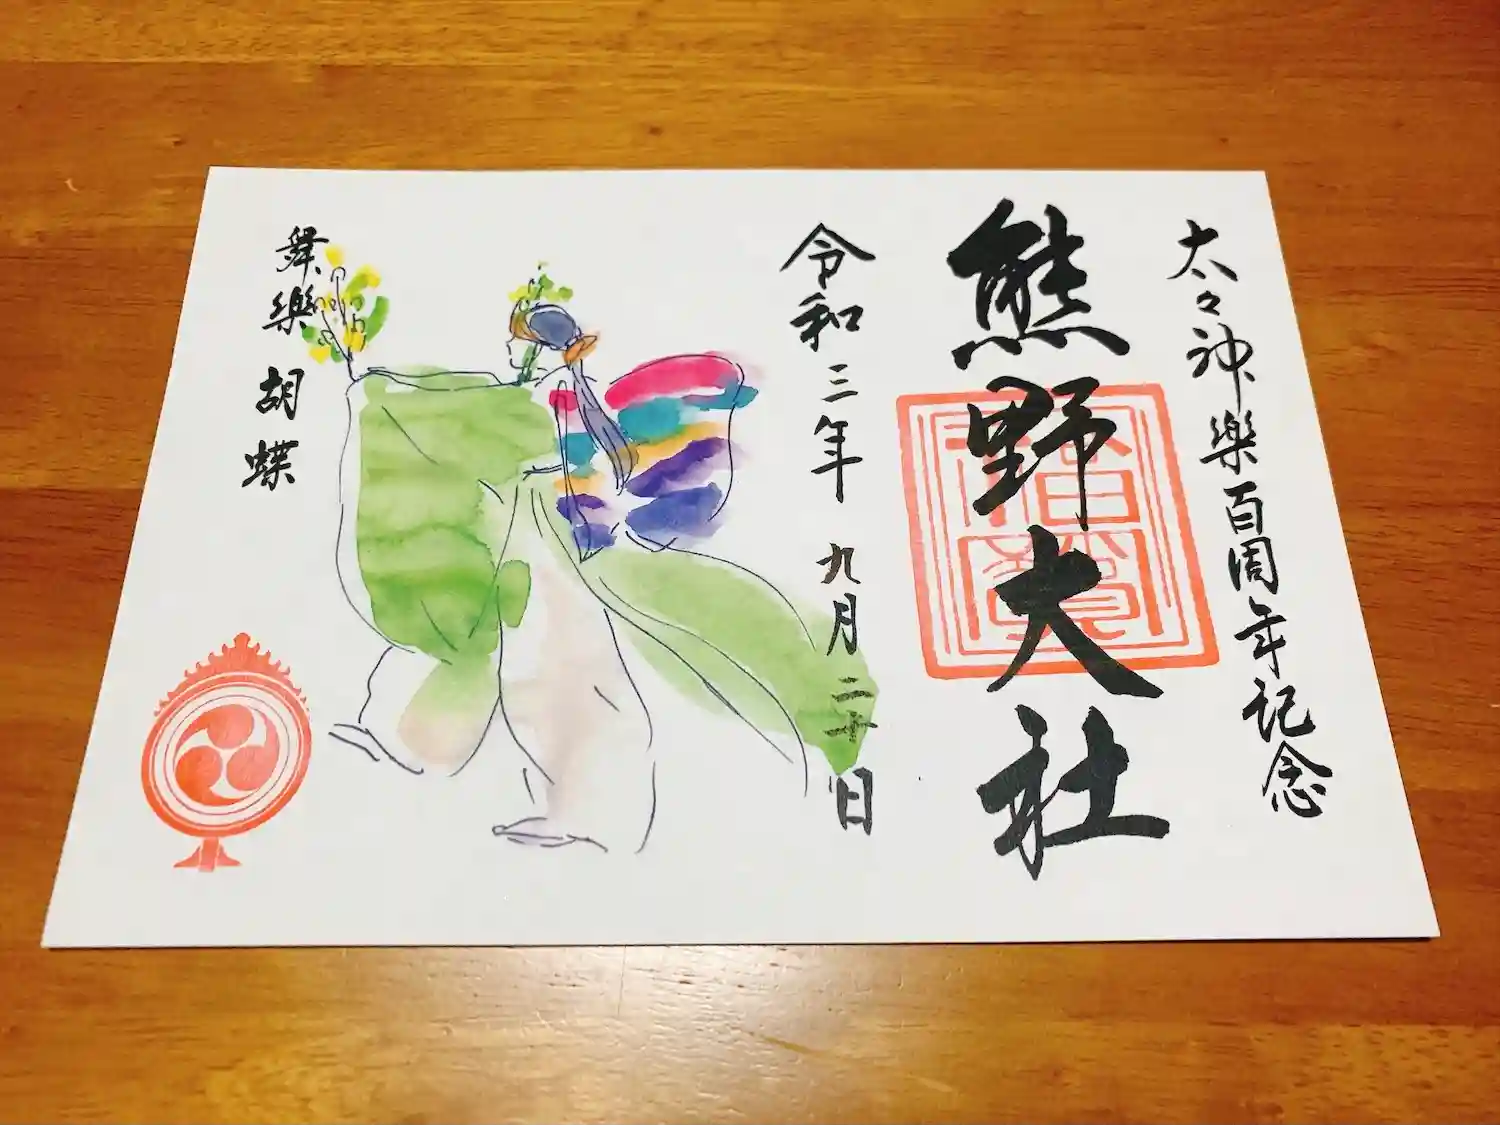 太々神樂百周年记念
熊野大社
令和三年 九月二十日
舞樂 胡蝶